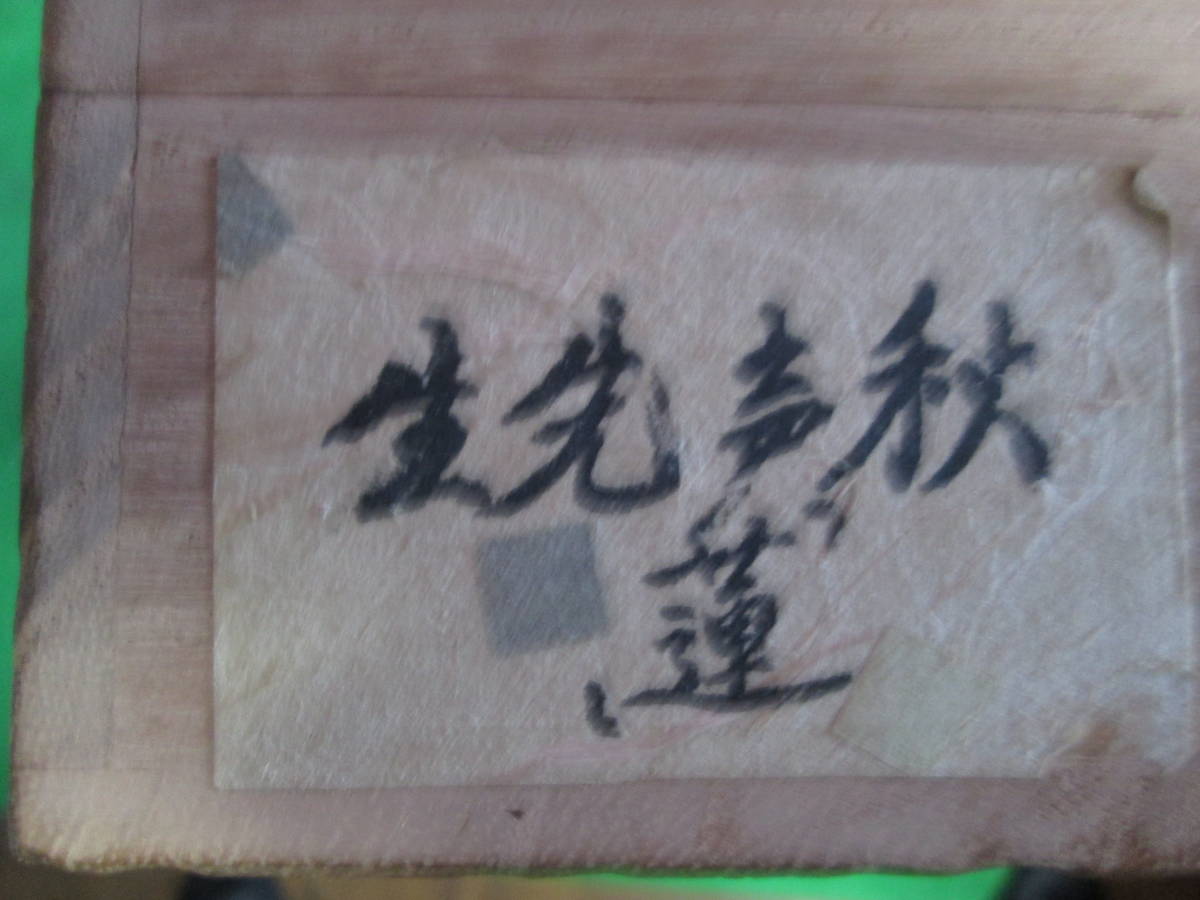 秋声先生
蓮